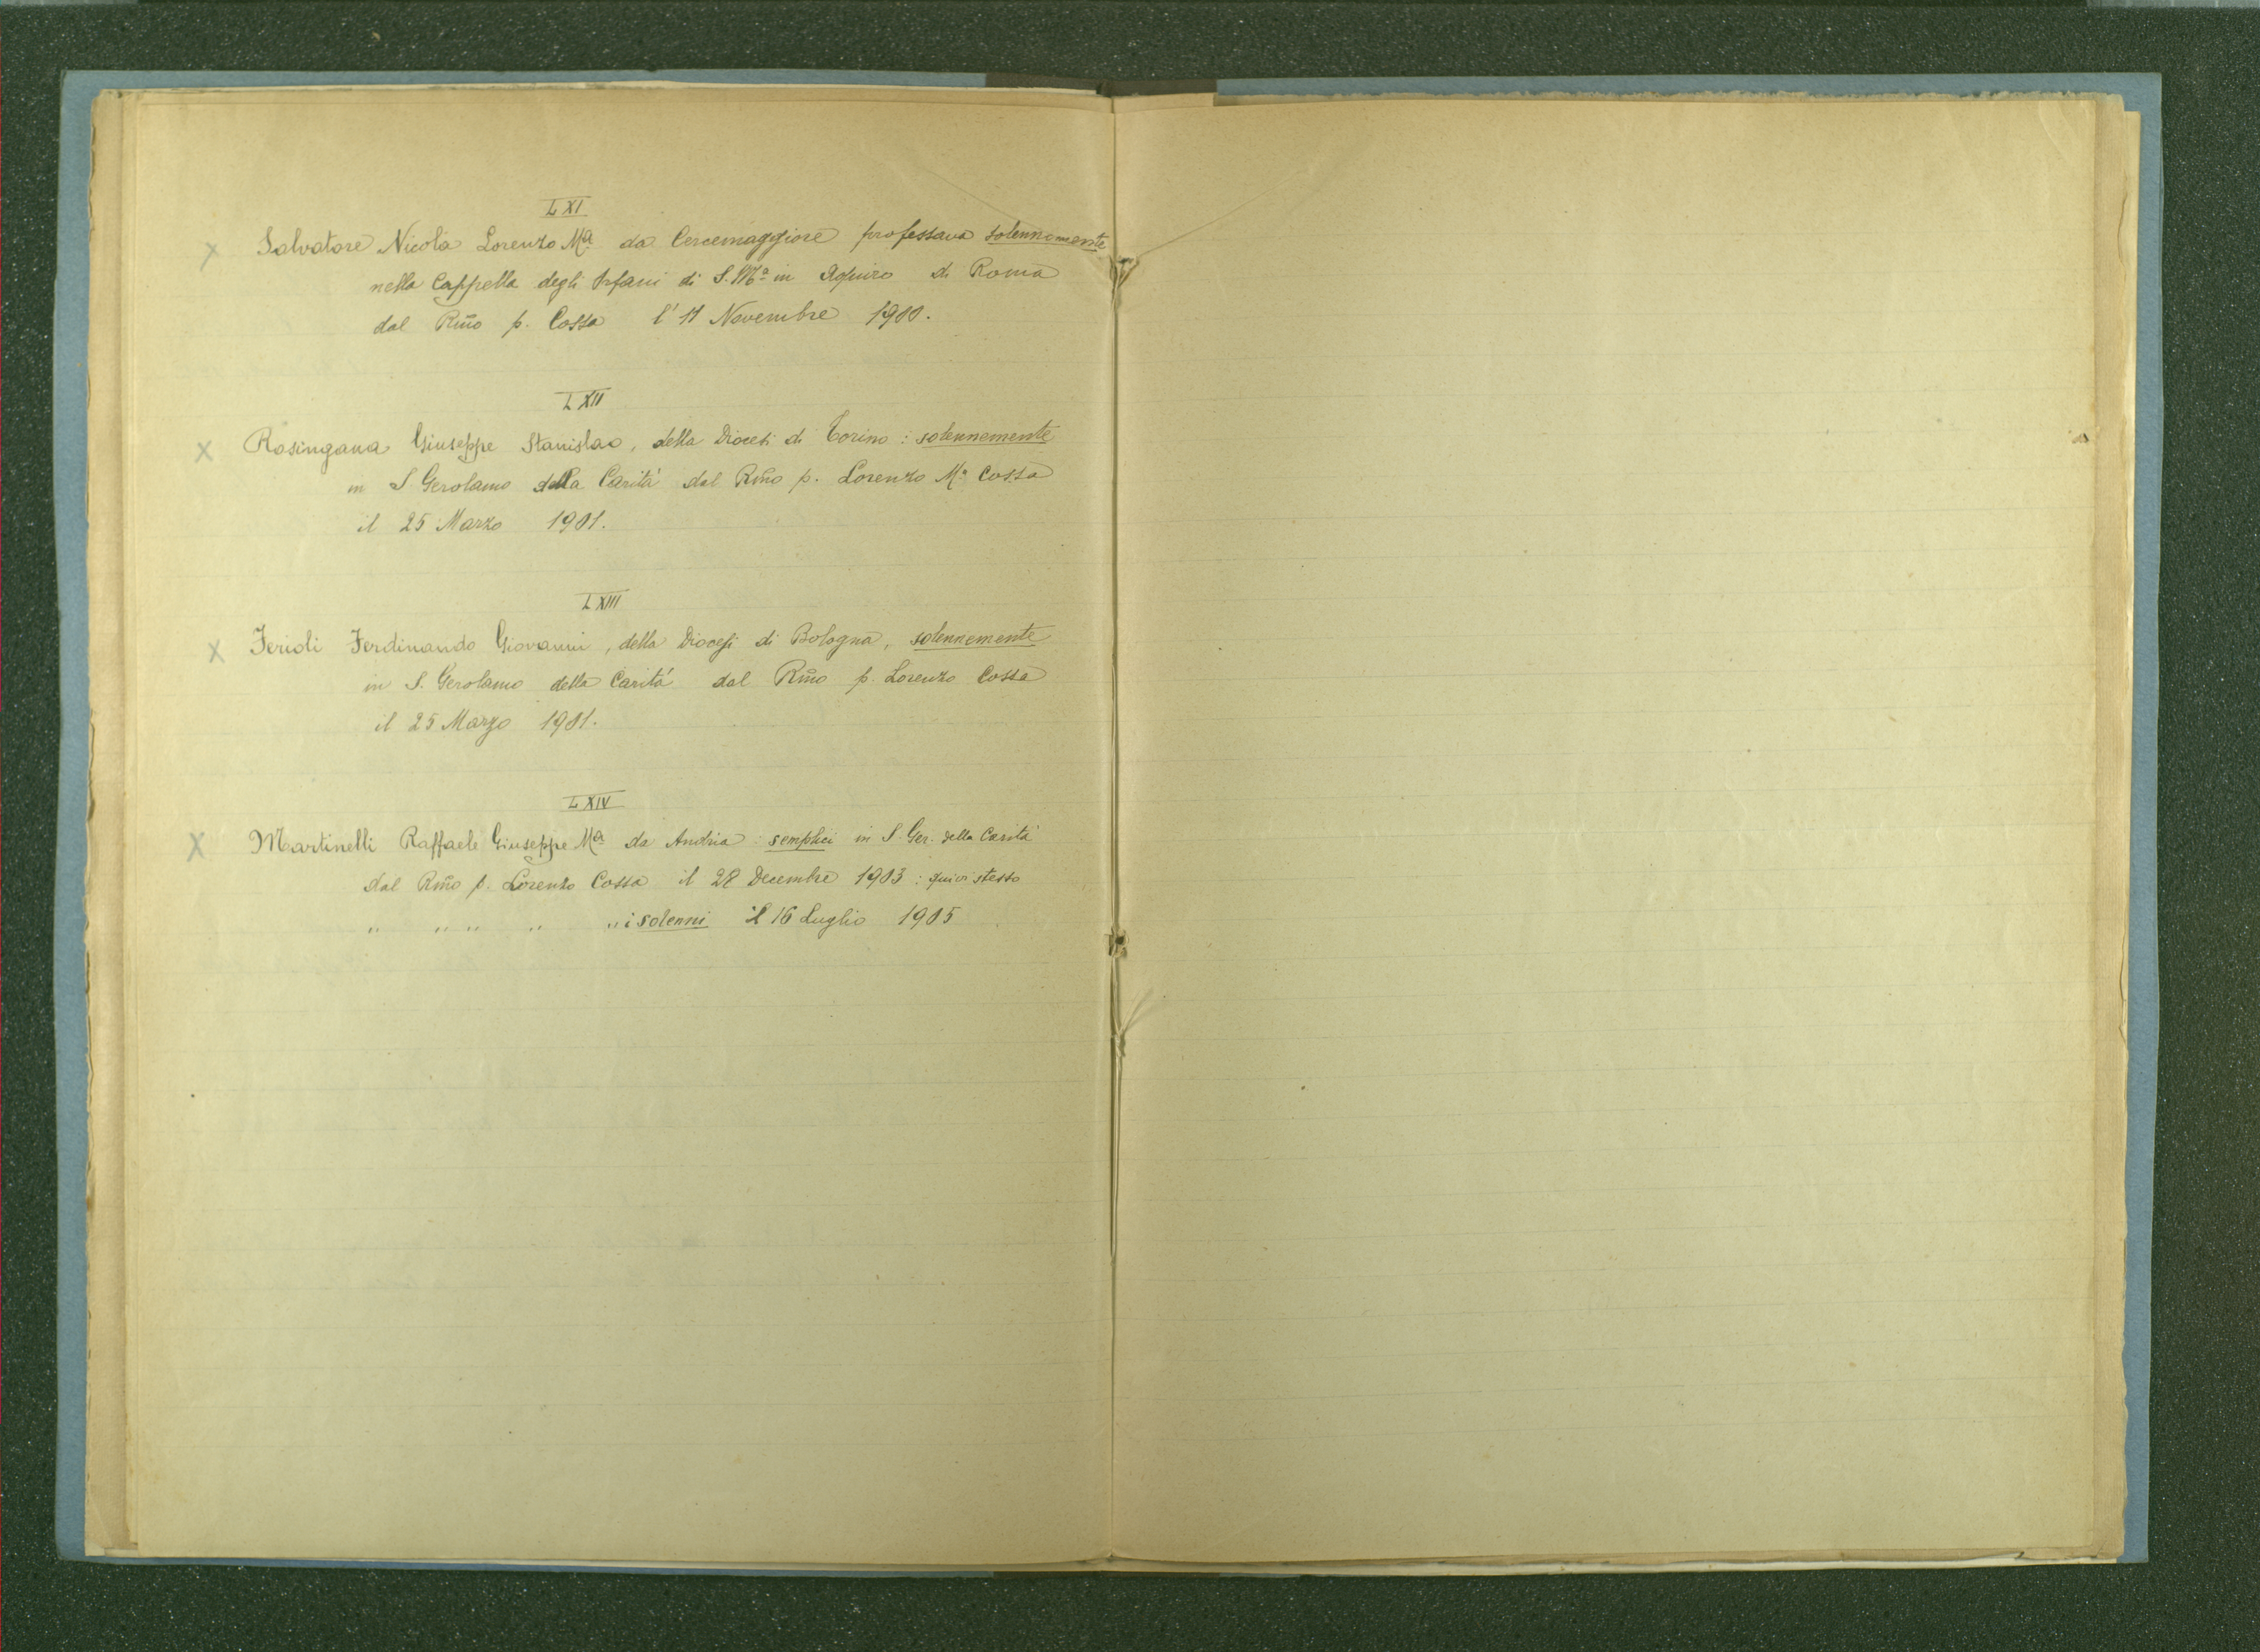 LXI
X Salvatore Nicola Lorenzo Mª da Cercemaggiore professava solennemente
nella Cappella degli Orfani di S. Mª in Aquiro di Roma
dal Rm̃o p. Cossa l'11 Novembre 1900.
LXII
X Rosingana Giuseppe Stanislao, della Diocesi di Torino: solennemente
in S Gerolamo della Carità dal Rm̃o p. Lorenzo Mª Cossa
il 25 Marzo 1901.
LXIII
X Ferioli Ferdinando Giovanni, della Diocesi di Bologna, solennemente
in S. Gerolamo della Carità dal Rm̃o p. Lorenzo Cossa
il 25 Marzo 1901.
LXIV
X Martinelli Raffaele Giuseppe Mª da Andria: semplici in S. Ger. della Carità
dal Rm̃o p. Lorenzo Cossa il 28 Decembre 1903: quivi stesso
" " " " " i solenni il 16 Luglio 1905